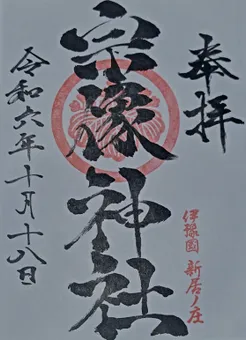 奉拝
伊豫国 新居ノ庄
宗像神社
令和六年十月十八日